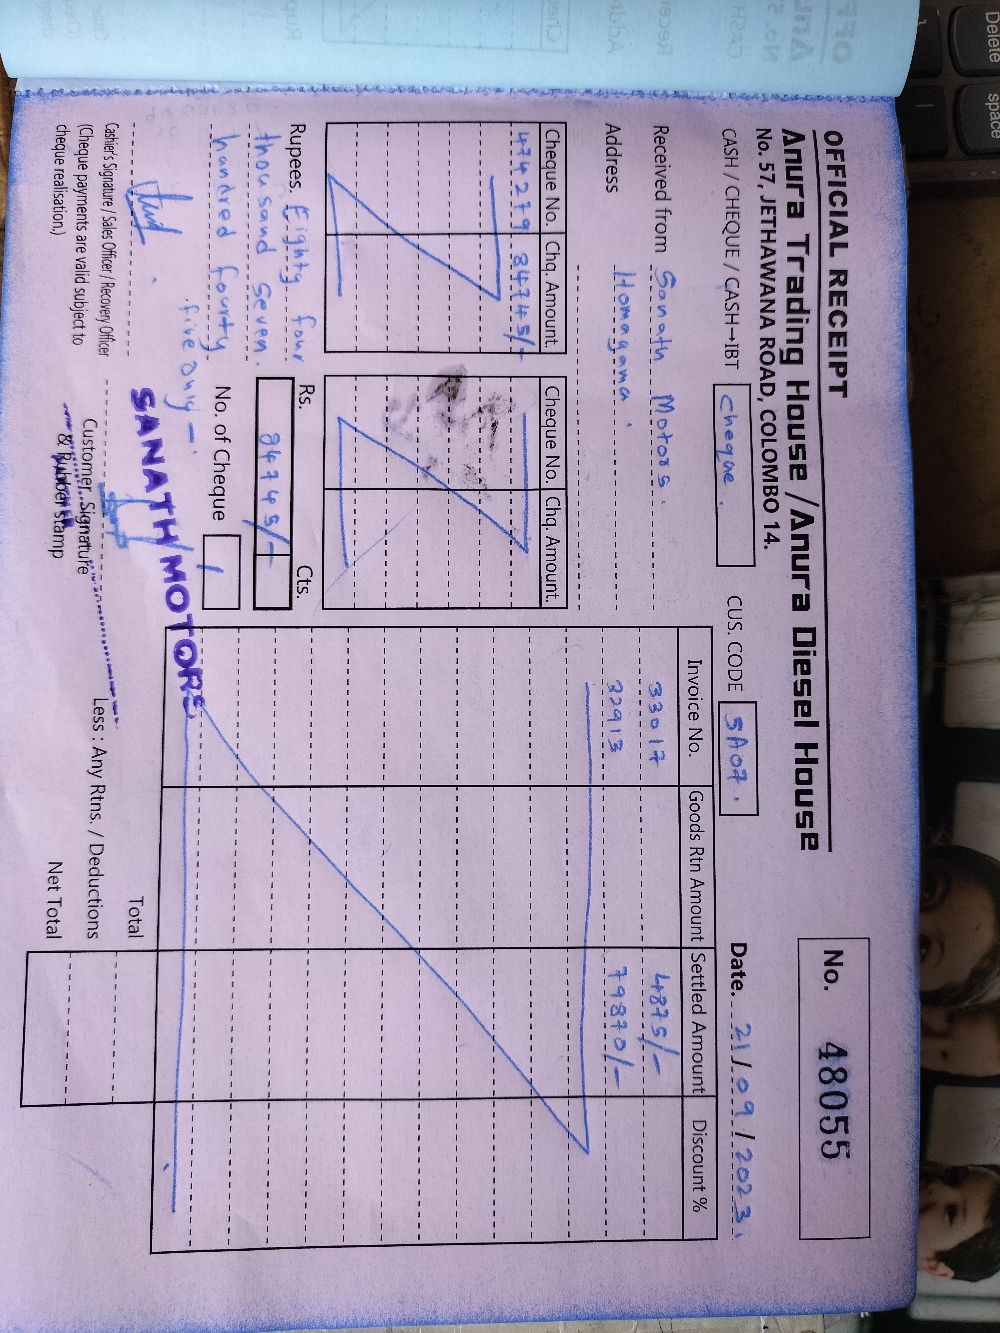 OFFICIAL RECEIPT
Anura Trading House / Anura Diesel House
No. 57, JETHAWANA ROAD, COLOMBO 14.
No. 48055
CASH / CHEQUE / CASH→IBT cheque.
CUS. CODE SA07.
Date. 21/09/2023.
Received from Sanath Motors.
Address Homagama.
Cheque No. Chq. Amount.
474279 84745/-
Cheque No. Chq. Amount.
Rupees. Eighty four
thousand seven
handred fourty
five only-.
Rs. Cts.
84745/-
No. of Cheque 1
Invoice No. Goods Rtn Amount Settled Amount Discount %
33017 4875/-
32913 79870/-
Total
Less : Any Rtns. / Deductions
Net Total
Cashier's Signature / Sales Officer / Recovery Officer
(Cheque payments are valid subject to
cheque realisation.)
SANATH MOTORS
Customer Signature
& Rubber stamp
Delete
space